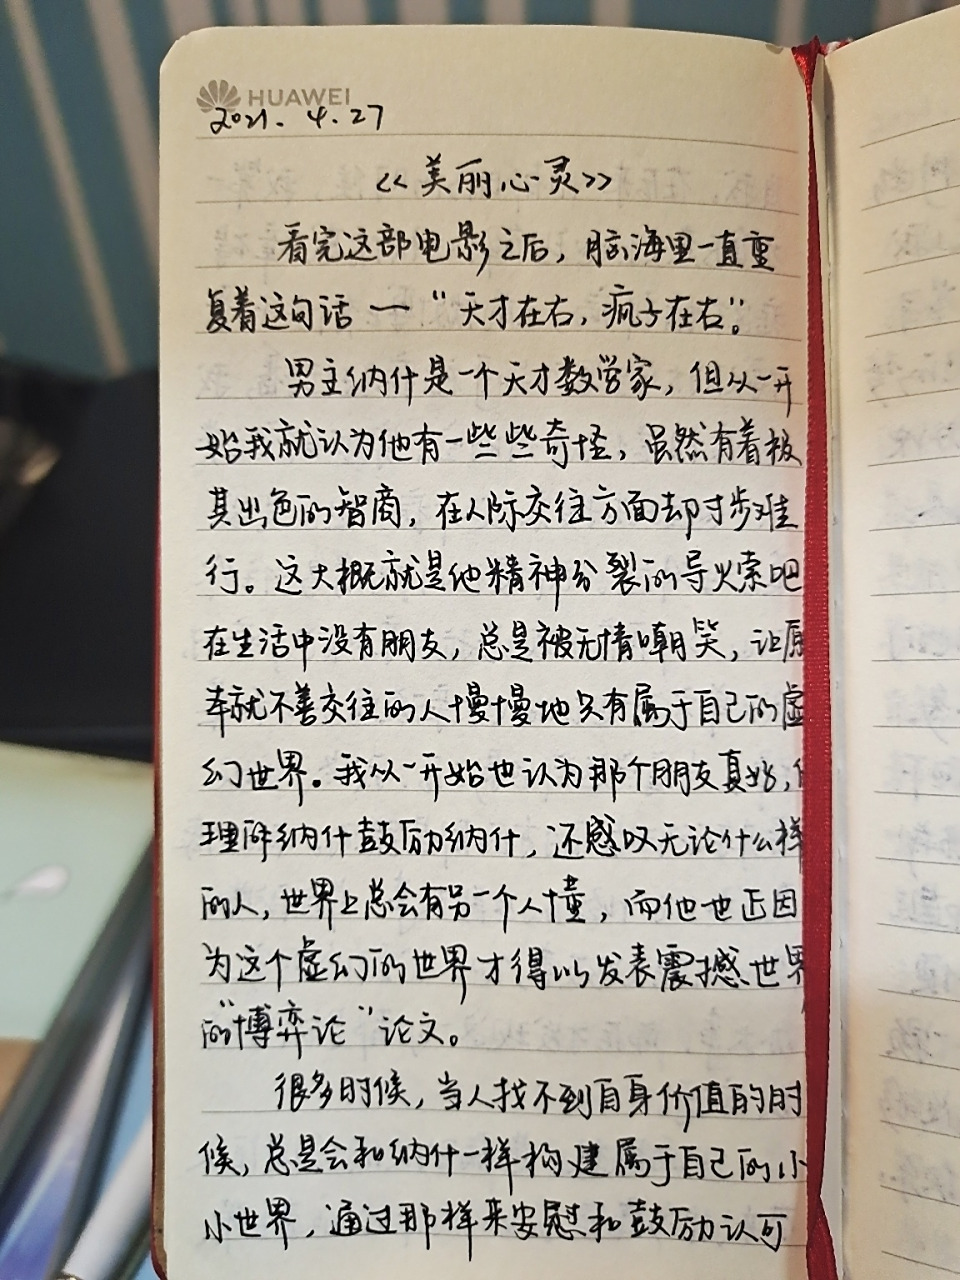 HUAWEI
2021.4.27
<<美丽心灵>>
看完这部电影之后，脑海里一直重
复着这句话 — “天才在右，疯子在右”。
男主纳什是一个天才数学家，但从一开
始我就认为他有一些些奇怪，虽然有着极
其出色的智商，在人际交往方面却寸步难
行。这大概就是他精神分裂的导火索吧
在生活中没有朋友，总是被无情嘲笑，让原
本就不善交往的人慢慢地只有属于自己的虚
幻世界。我从一开始也认为那个朋友真始，
理解纳什鼓励纳什，还感叹无论什么样
的人，世界上总会有另一个人懂，而他也正因
为这个虚幻的世界才得以发表震撼世界
的“博弈论”论文。
很多时候，当人找不到自身价值的时
候，总是会和纳什一样构建属于自己的小
小世界，通过那样来安慰和鼓励认可